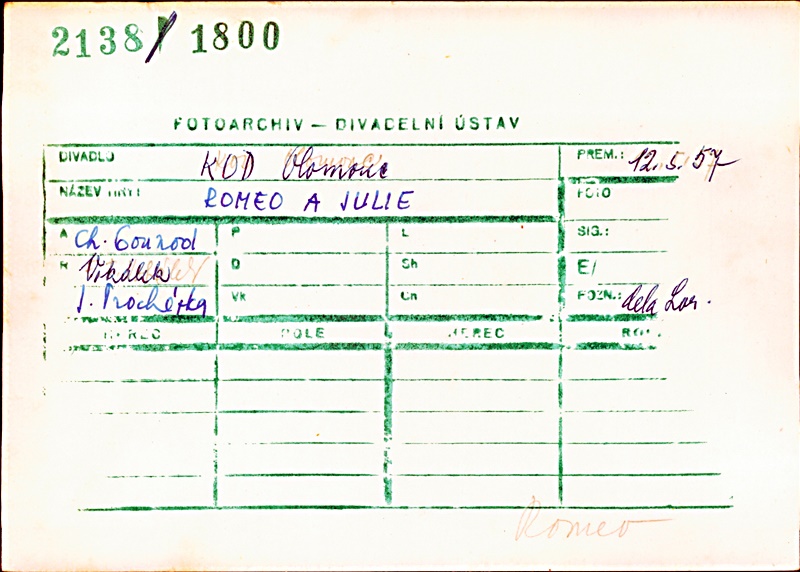 2138/1800
FOTOARCHIV — DIVADELNÍ ÚSTAV
DIVADLO KOD Olomouc PREM.: 12.5.57
NÁZEV HRY: ROMEO A JULIE FOTO
A Ch. Gounod P L SIG.:
R D Sh E/
J. Procházka Vk Ch POZN.:
HEREC ROLE HEREC ROLE
Romeo